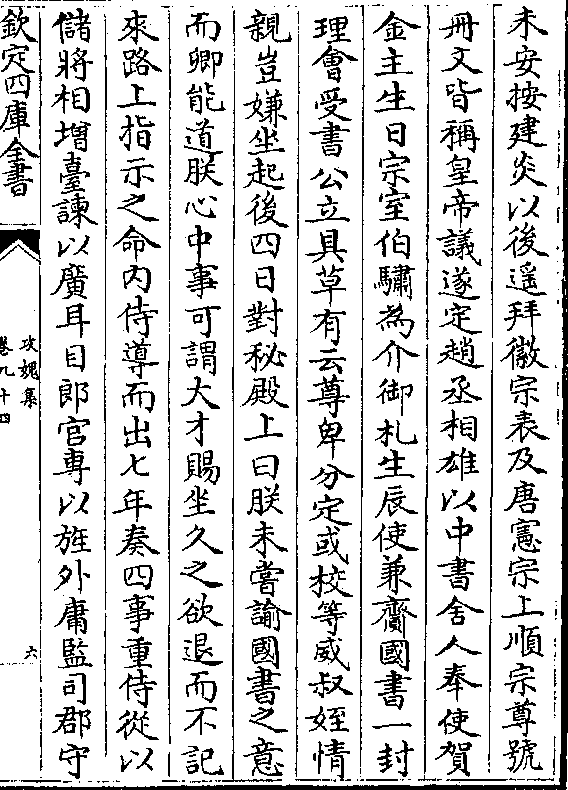 未安按建炎以後遥拜徽宗表及唐憲宗上順宗尊號
冊文皆稱皇帝議遂定趙丞相雄以中書舍人奉使賀
金主生日宗室伯驌為介御札生辰使兼齎國書一封
理會受書公立具草有云尊卑分定或校等威叔姪情
親豈嫌坐起後四日對秘殿上曰朕未嘗諭國書之意
而卿能道朕心中事可謂大才賜坐久之欲退而不記
來路上指示之命内侍導而出七年奏四事重侍從以
儲將相增臺諫以廣耳目郎官専以旌外庸監司郡守
欽定四庫全書
攻媿集
卷九十四
六